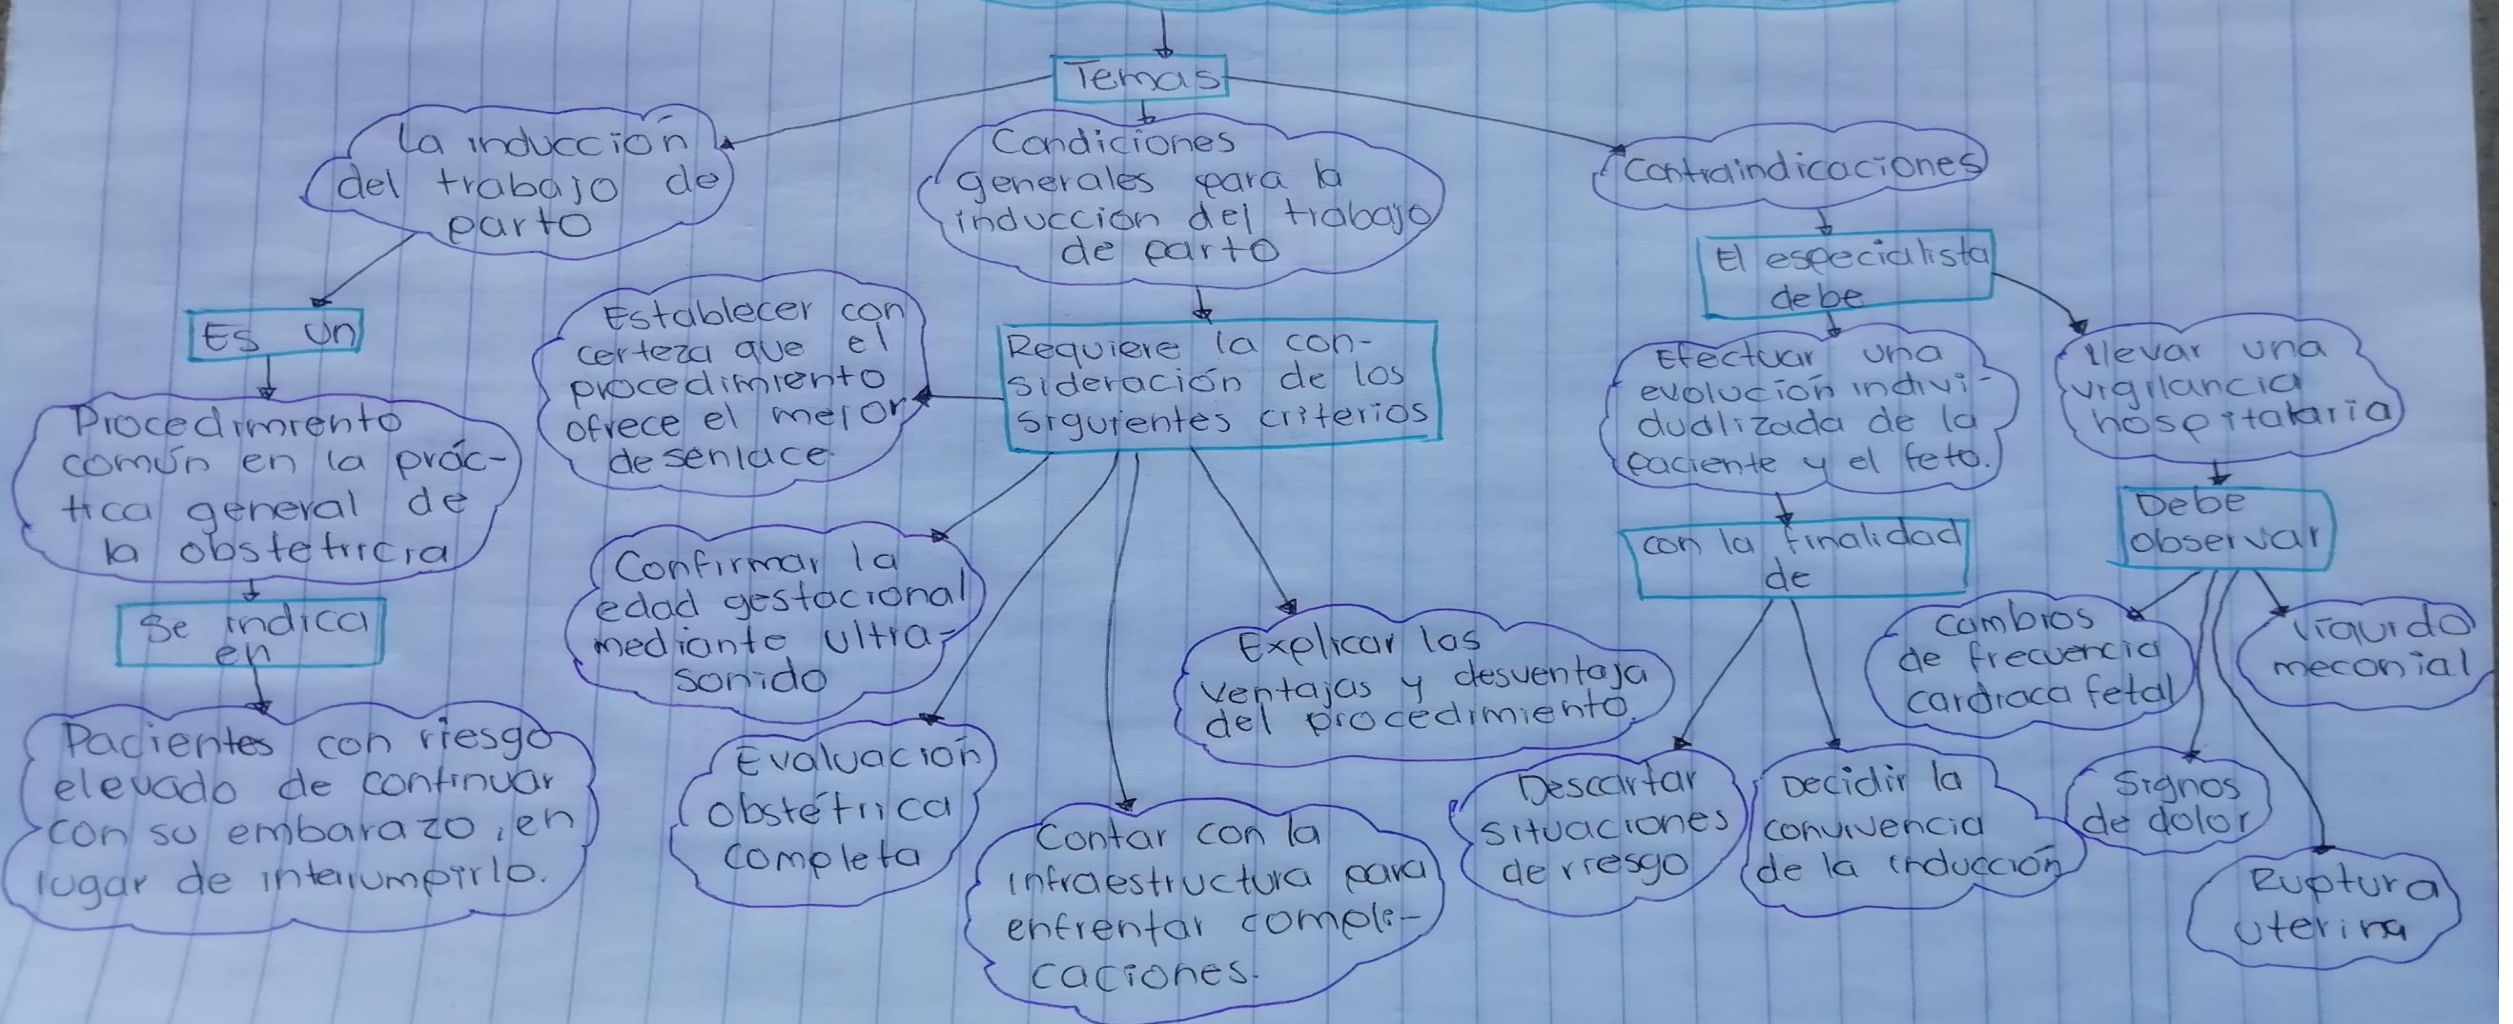 Temas
La inducción
del trabajo de
parto
Es un
Procedimiento
común en la prác-
tica general de
la obstetricia
Se indica
en
Pacientes con riesgo
elevado de continuar
con su embarazo, en
lugar de interrumpirlo.
Condiciones
generales para la
inducción del trabajo
de parto
Requiere la con-
sideración de los
siguientes criterios
Establecer con
certeza que el
procedimiento
ofrece el mejor
desenlace.
Confirmar la
edad gestacional
mediante ultra-
sonido
Evaluación
obstétrica
completa
Contar con la
infraestructura para
enfrentar compli-
caciones.
Explicar las
ventajas y desventaja
del procedimiento.
Contraindicaciones
El especialista
debe
Efectuar una
evolución indivi-
dualizada de la
paciente y el feto.
con la finalidad
de
Descartar
situaciones
de riesgo
Decidir la
convivencia
de la inducción
Llevar una
vigilancia
hospitalaria
Debe
observar
Cambios
de frecuencia
cardiaca fetal
Signos
de dolor
Ruptura
uterina
Líquido
meconial